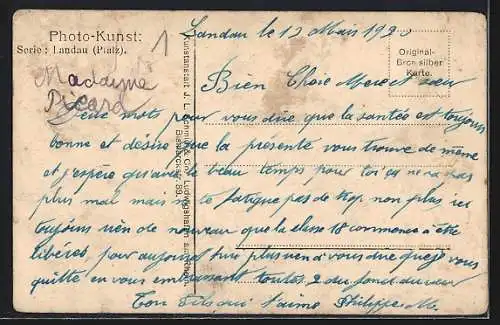 Photo-Kunst:
Serie: Landau (Pfalz).
1
Landau le 12 Mais 192
Original-
Bromsilber
Karte.
Madame
Picard
Bien Chere Mere et sœur
Deux mots pour vous dire que la santée est toujours
bonne et désire que la presente vous trouve de même
et j'espère qu'avec le beau temps pour toi ça ne va pas
plus mal mais ne te fatigue pas de trop non plus ici
toujours rien de nouveau que la classe 18 commence a être
libérés, pour aujourd'hui plus rien a vous dire que je vous
quitte en vous embrassant toutes 2 du fond du cœur
Ton fils qui t'aime Philippe M.
Kunstanstalt J. L. & Co., Ludwigshafen a. Rhein
Bismarckstr.